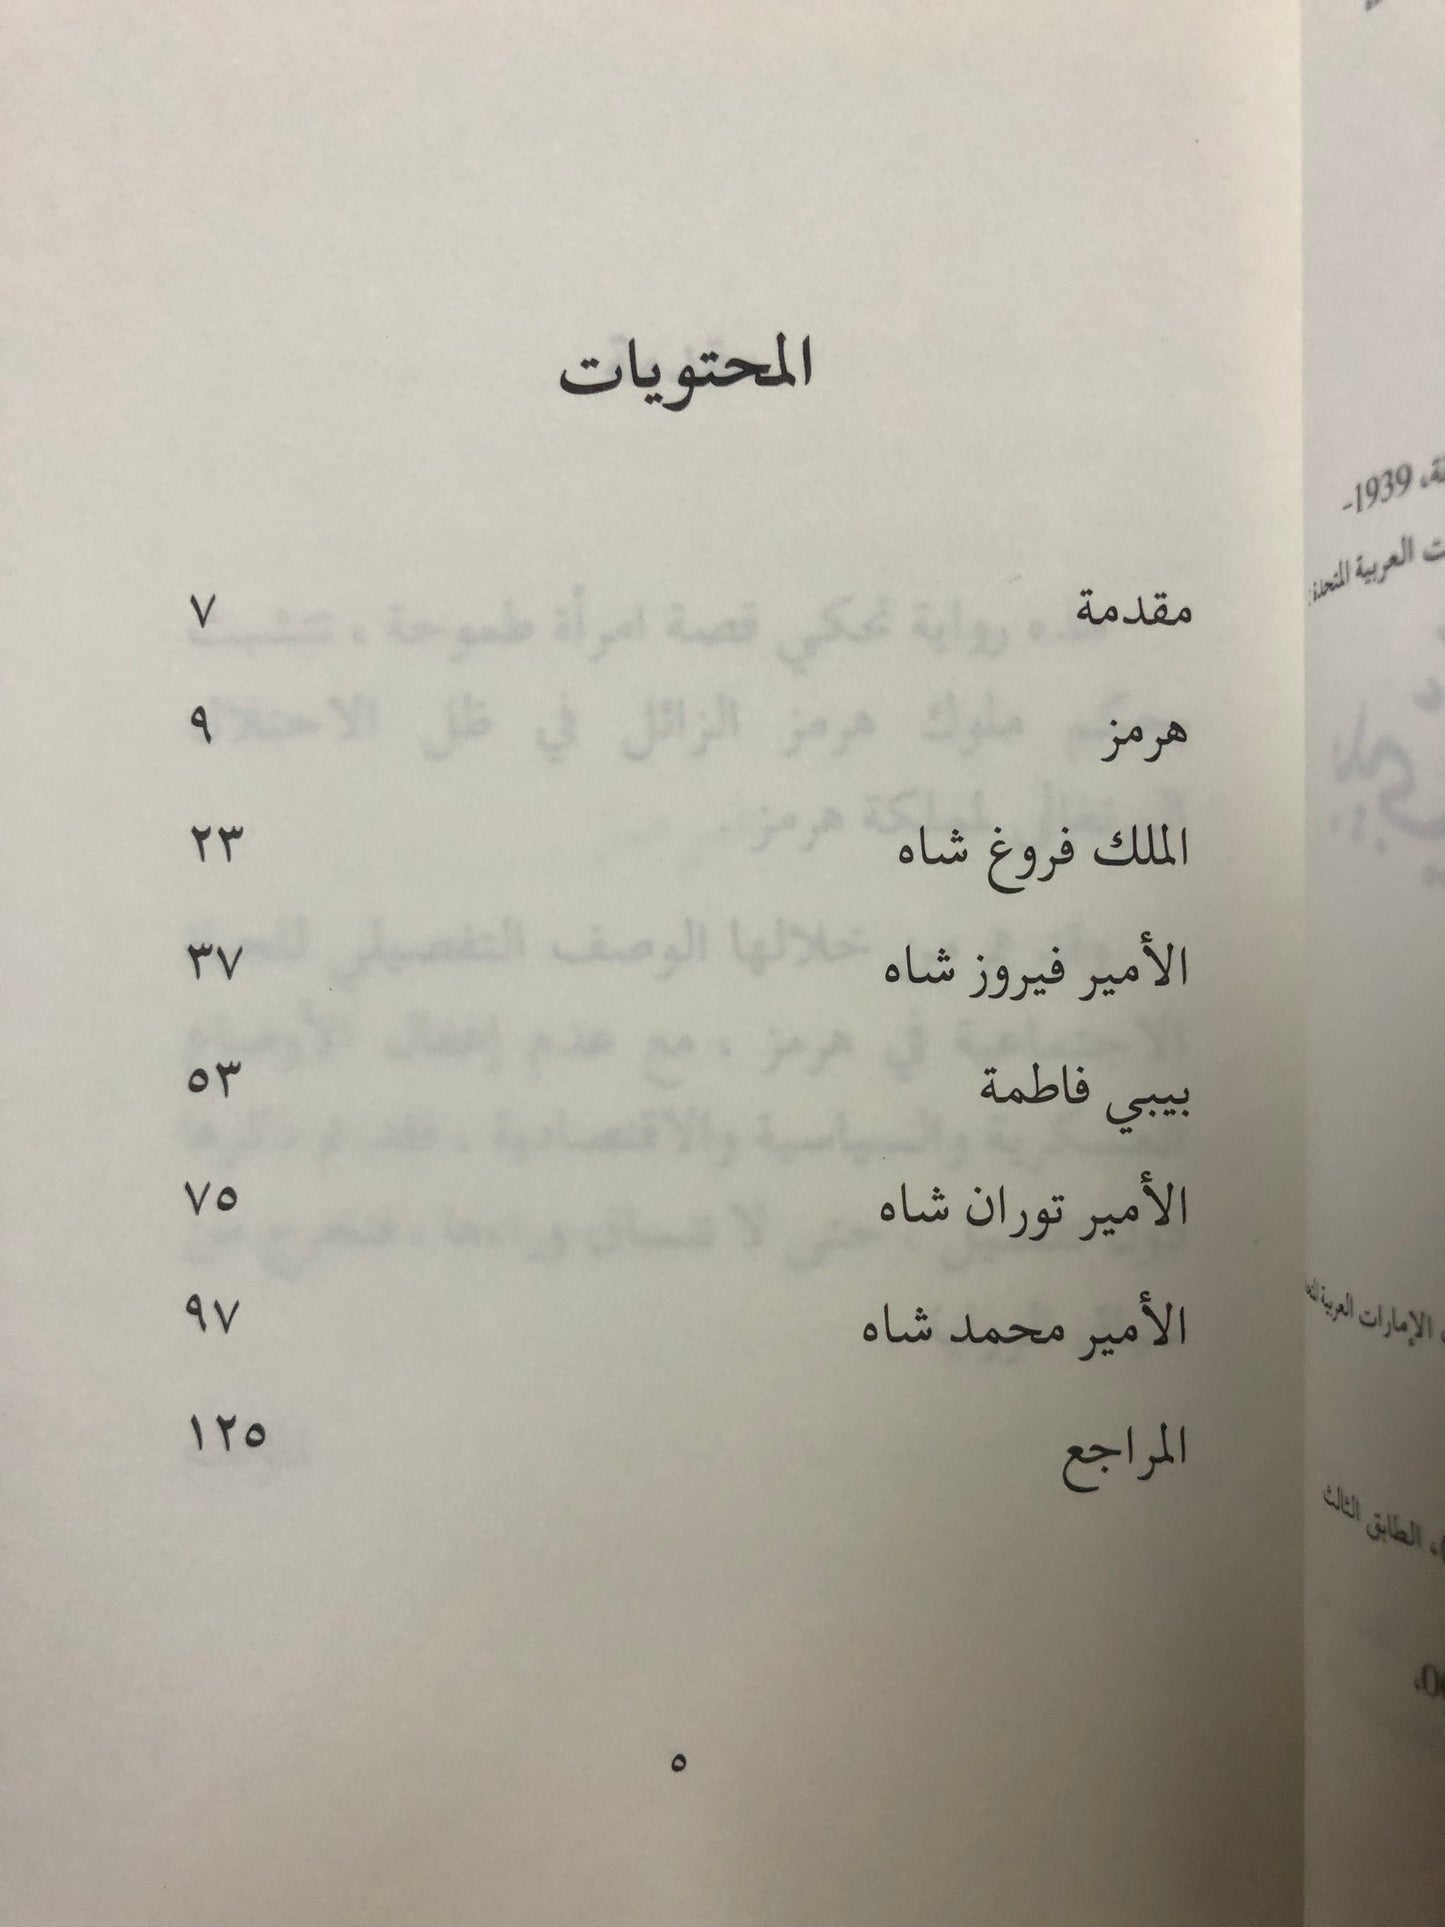 المحتويات
مقدمة ٧
هرمز ٩
الملك فروغ شاه ٢٣
الأمير فيروز شاه ٣٧
بيبي فاطمة ٥٣
الأمير توران شاه ٧٥
الأمير محمد شاه ٩٧
المراجع ١٢٥
٥
1939-
العربية المتحدة
الإمارات العربية
الطابق الثالث